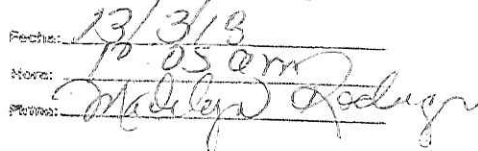 Fecha: 13/3/19
Hora: 10:05 am
Firma: Madelyn Rodrigz